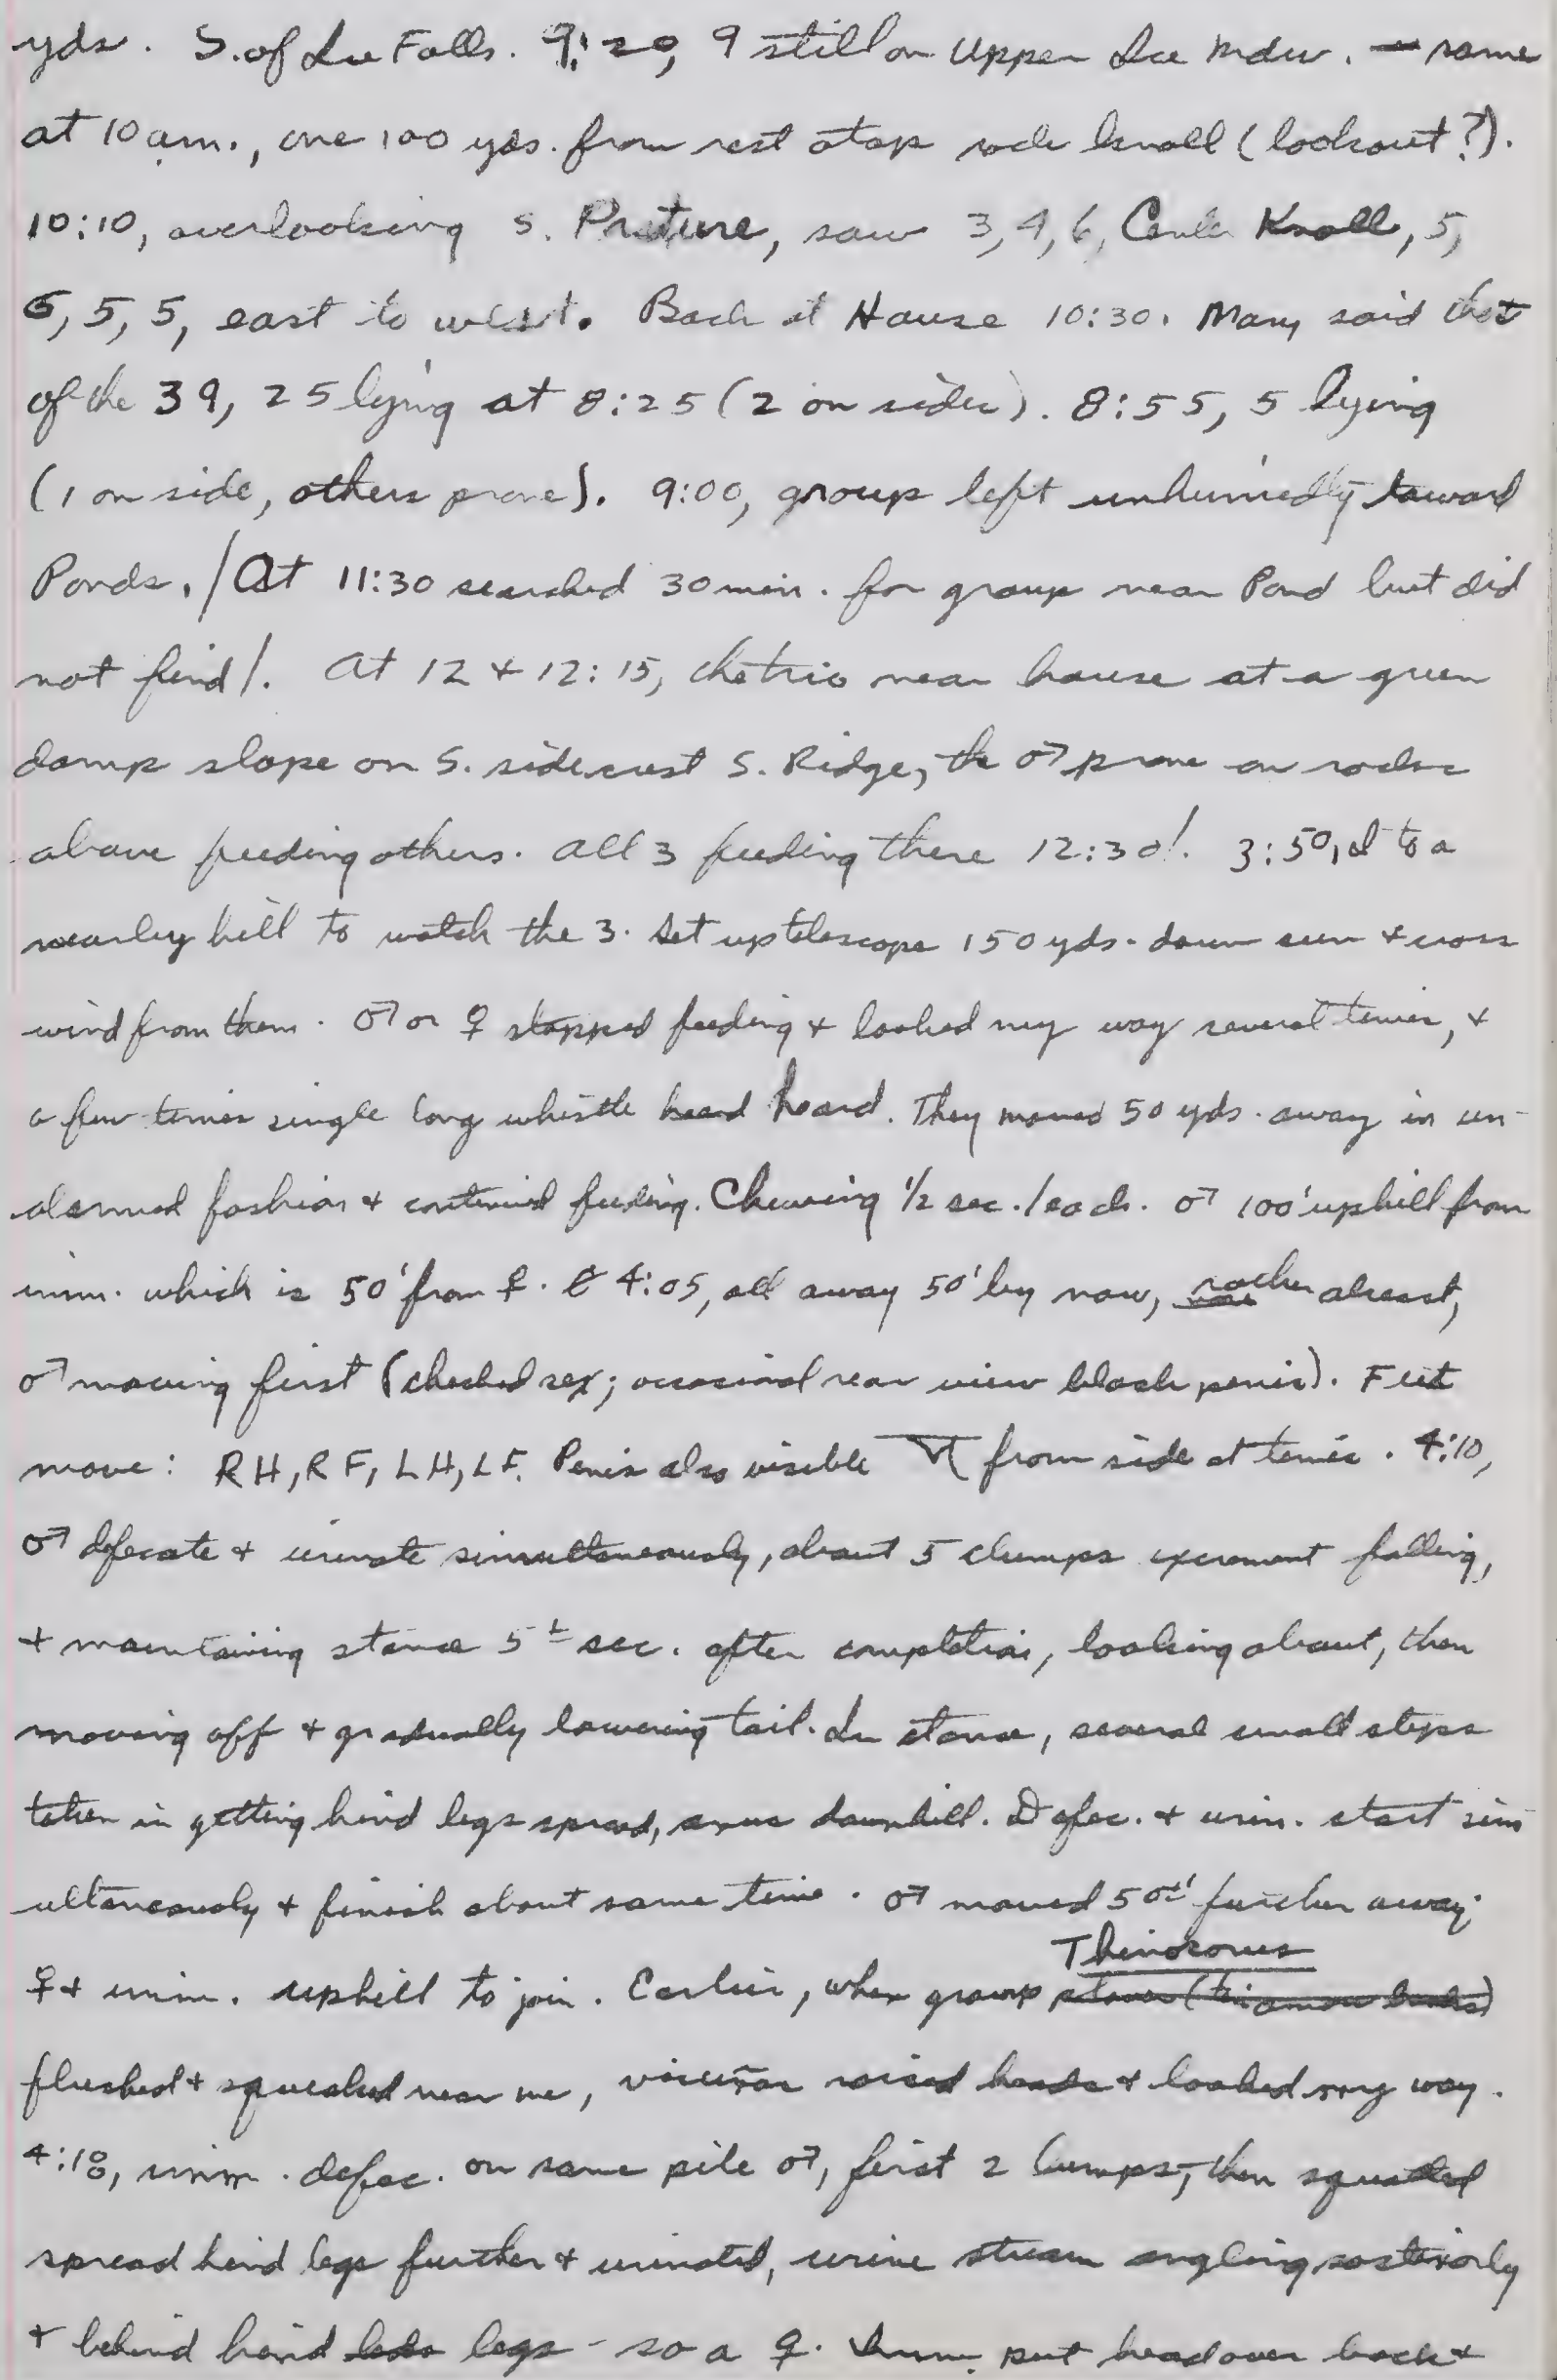 yds. S. of Ice Falls. 9:20, 9 still on Upper Ice Mdw. — same
at 10 am., one 100 yds. from rest stop rock knoll (lookout?).
10:10, overlooking S. Pasture, saw 3, 4, 6, Center Knoll, 5,
6, 5, 5, east to west. Back at House 10:30. Mary said that
of the 39, 25 lying at 8:25 (2 on sides). 8:55, 5 lying
(1 on side, others prone). 9:00, group left unhurriedly toward
Ponds. /At 11:30 searched 30 min. for group near Pond but did
not find/. At 12 + 12:15, the trio near house at a green
damp slope on S. side crest S. Ridge, the ♂ prone on rocks
above feeding others. All 3 feeding there 12:30/. 3:50, I to a
nearby hill to watch the 3. Set up telescope 150 yds. down sun + cross
wind from them. ♂ or ♀ stopped feeding + looked my way several times, +
a few times single long whistle heard heard. They moved 50 yds. away in un-
alarmed fashion + continued feeding. Chewing 1/2 sec./each. ♂ 100' uphill from
imm. which is 50' from ♀. 4:05, all away 50' by now, rather abreast,
♂ moving first (checked sex; occasional rear view black penis). Feet
move: RH, RF, LH, LF. Penis also visible from side at times. 4:10,
♂ defecate + urinate simultaneously, about 5 clumps excrement falling,
+ maintaining stance 5± sec. after completion, looking about, then
moving off + gradually lowering tail. In stance, several small steps
taken in getting hind legs spread, anus downhill. Defec. + urin. start sim
ultaneously + finish about same time. ♂ moved 50±' further away;
♀ + imm. uphill to join. Earlier, when group Thinocorus
flushed + squeaked near me, vicuñas raised heads + looked my way.
4:18, imm. defec. on same pile ♂, first 2 lumps, then squatted
spread hind legs further + urinated, urine stream angling posteriorly
+ behind hind legs - so a ♀. Imm. put head over back +